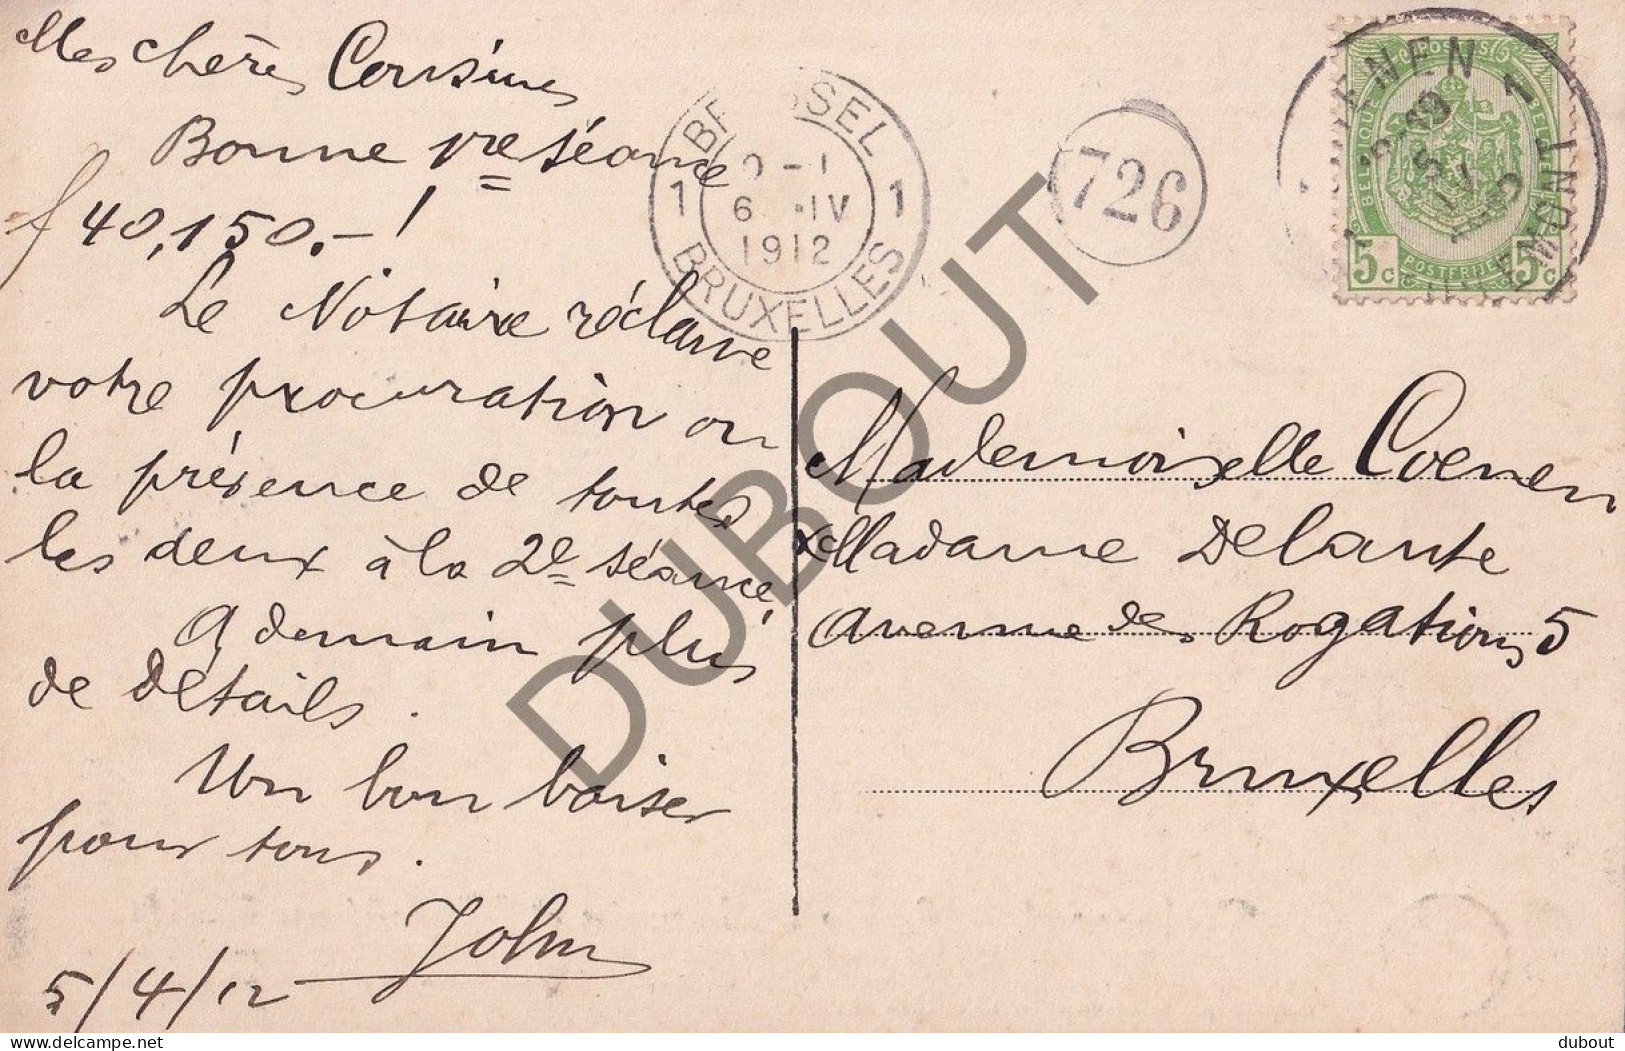 Mes chères Cousines
Bonne 1re séance
f 40,150.-!
Le Notaire réclame
votre procuration ou
la présence de toutes
les deux à la 2e séance
A demain plus
de détails.
Un bon baiser
pour tous.
John
5/4/12
BRUSSEL
1 1
6 IV
1912
BRUXELLES
726
POSTES
BELGIQUE
BELGIE
5c 5c
POSTERIJEN
1
Mademoiselle Coenen
Madame Delante
Avenue des Rogations 5
Bruxelles
DUBOUT
delcampe.net
dubout